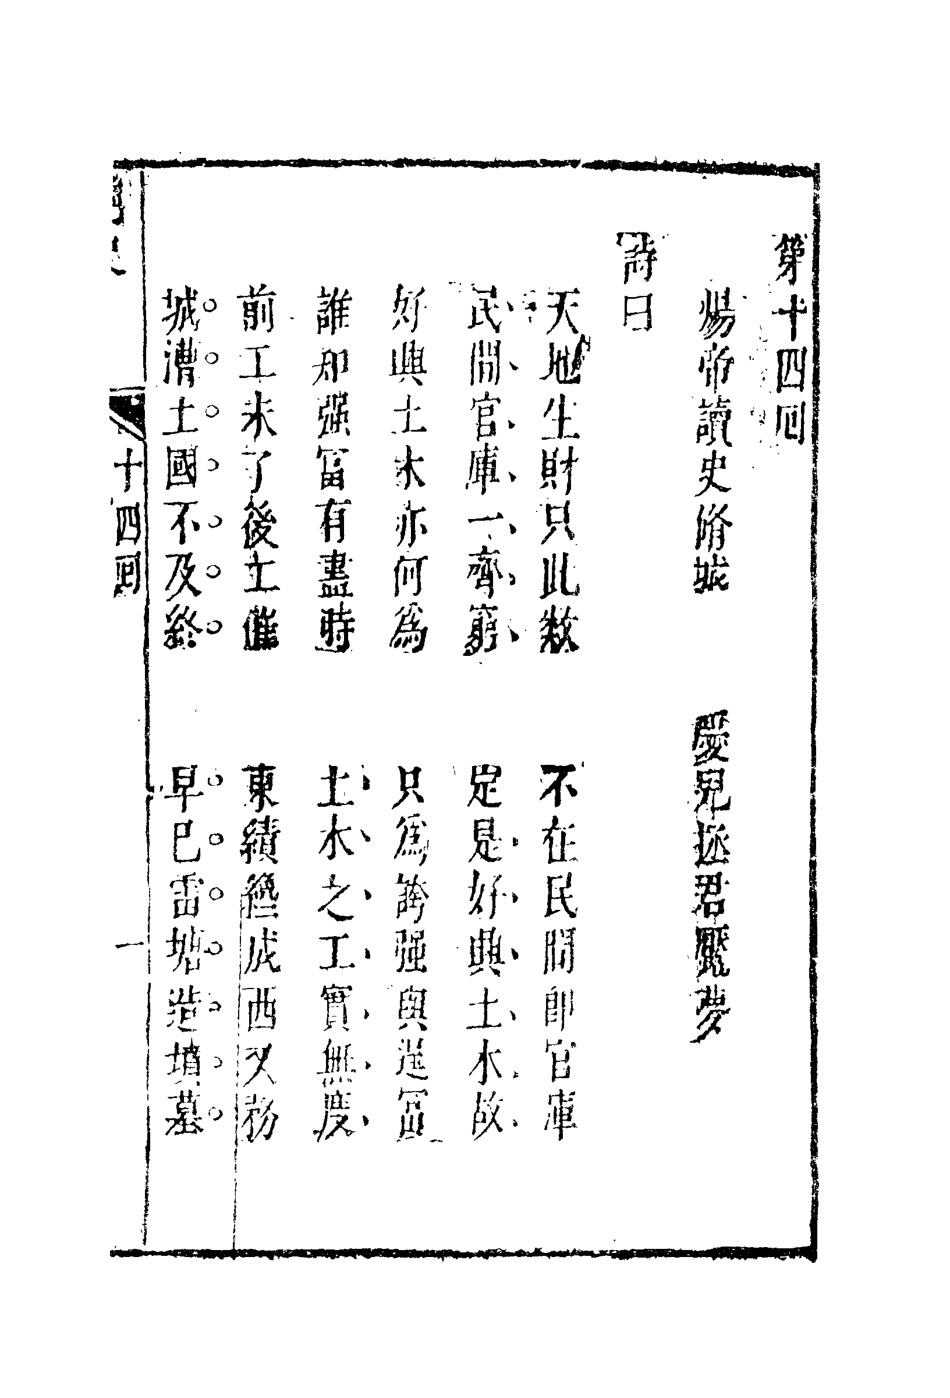 第十四回
煬帝讀史脩城　慶兒拯君魘夢
詩曰
天地生財只此數　不在民間卽官庫
民間官庫一齊窮　定是好興土木故
好興土木亦何爲　只爲誇强與逞冨
誰知强冨有盡時　土木之工實無度
前工未了後工催　東績纔成西又務
城漕土國不及終　早已雷塘造墳墓
史
十四回
一